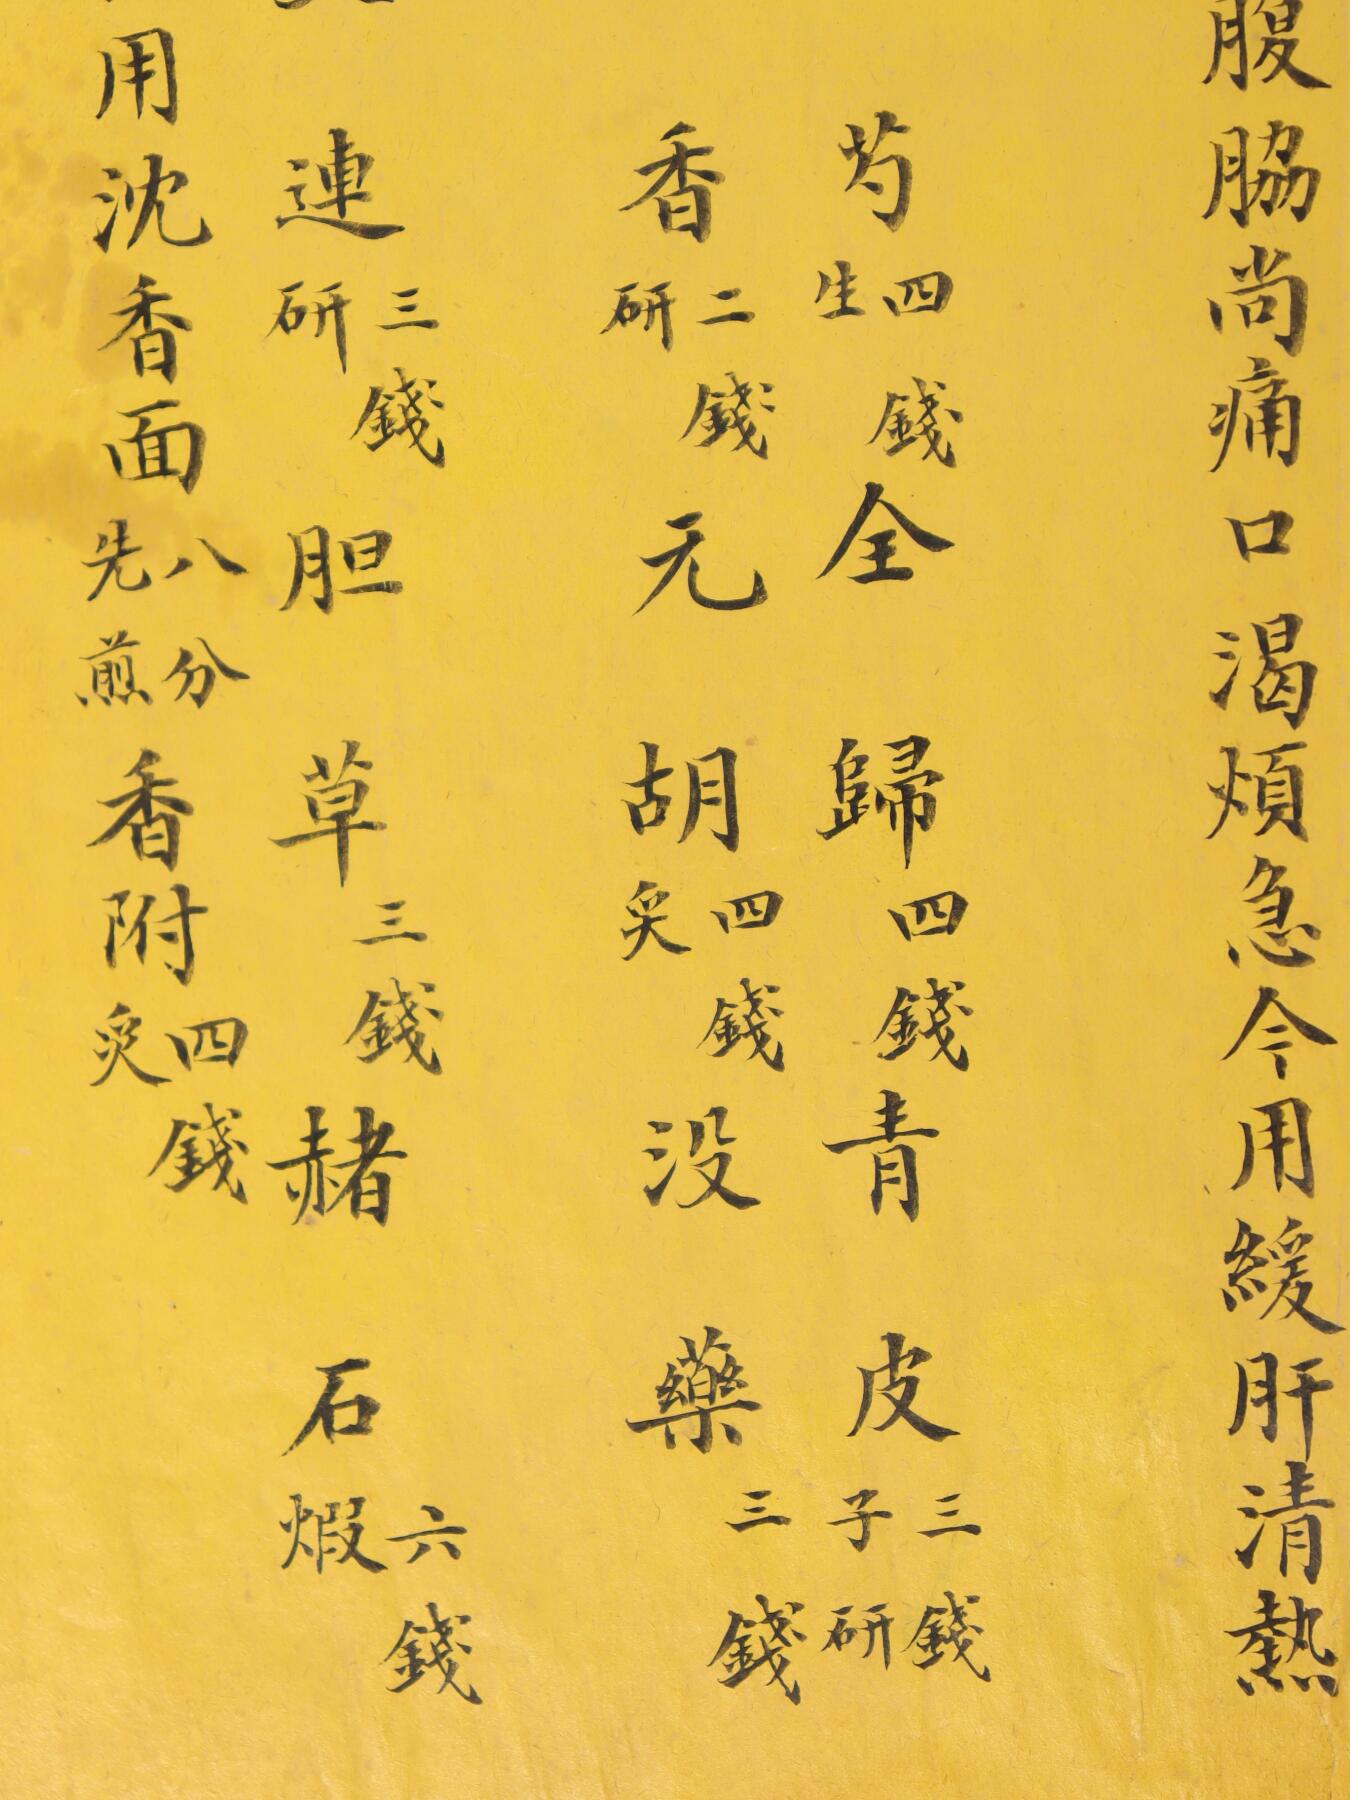 腹脇尚痛口渴煩急今用緩肝清熱
芍四錢生全歸四錢青皮三錢子研
香二錢研元胡四錢炙没藥三錢
連三錢研胆草三錢赭石六錢煆
用沈香面八分先煎香附四錢炙